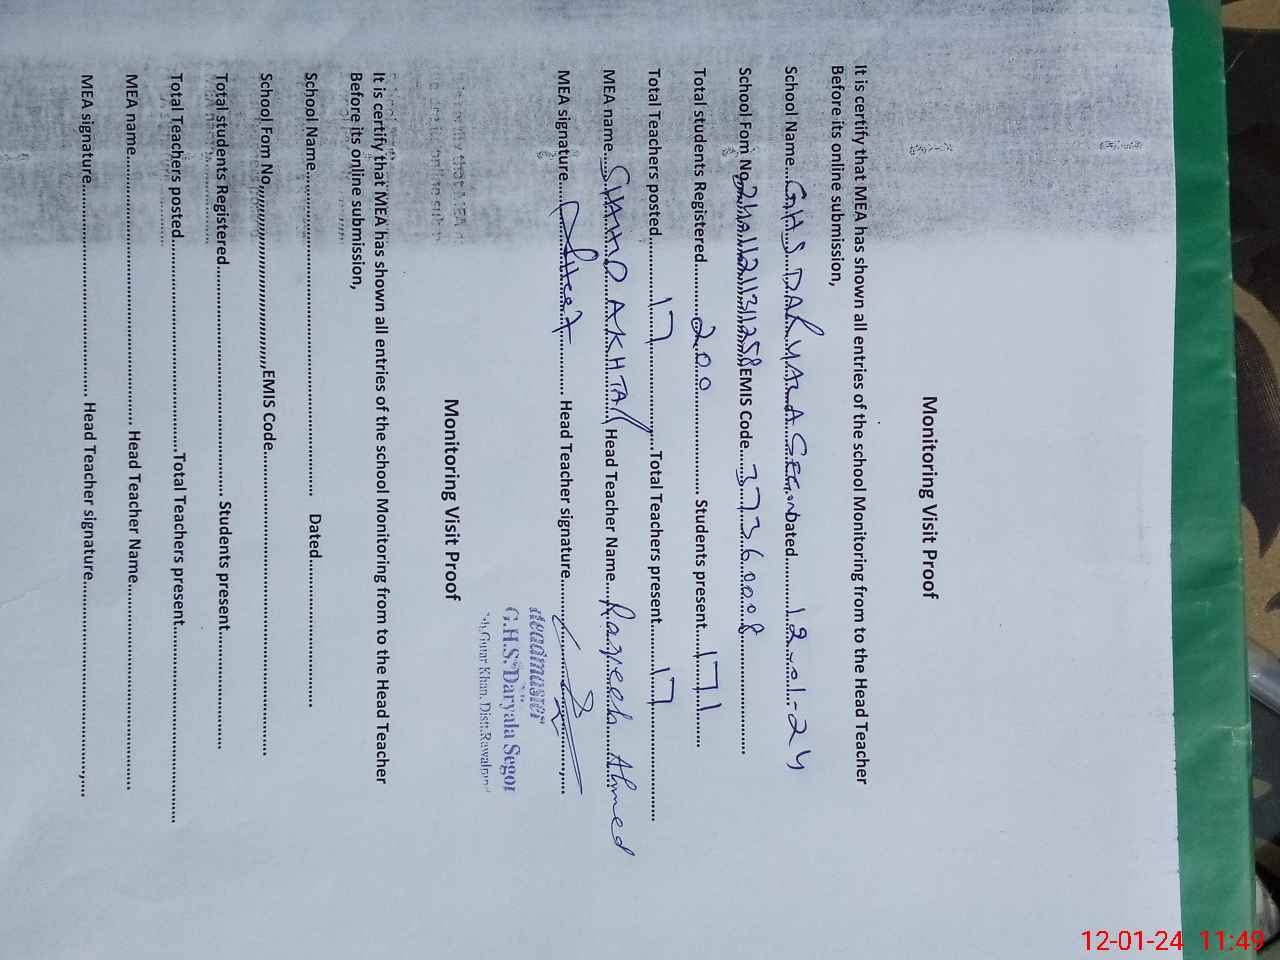 Monitoring Visit Proof
It is certify that MEA has shown all entries of the school Monitoring from to the Head Teacher
Before its online submission,
School Name....G.H.S. DARYALA SEGON Dated............12-01-24
School Fom No,,,,,,,,EMIS Code......37360008..............
Total students Registered...........200......................... Students present....171........
Total Teachers posted............17......................Total Teachers present........17......................
MEA name.... AKHTAR Head Teacher Name.... Ahmed
MEA signature............................ Head Teacher signature............................,....
Headmaster
G.H.S. Daryala Segon
Gujar Khan, Distt: Rawalpindi
Monitoring Visit Proof
It is certify that MEA has shown all entries of the school Monitoring from to the Head Teacher
Before its online submission,
School Name........................................................................ Dated.................................
School Fom No,,,,,,,,,,,,,,,,,,,,,,,,,,,,,,,,,,,EMIS Code.............................................................
Total students Registered.................................................. Students present..........................
Total Teachers posted............................................Total Teachers present..........................................
MEA name......................................................... Head Teacher Name...........................................
MEA signature............................................... Head Teacher signature........................................,....
12-01-24 11:49